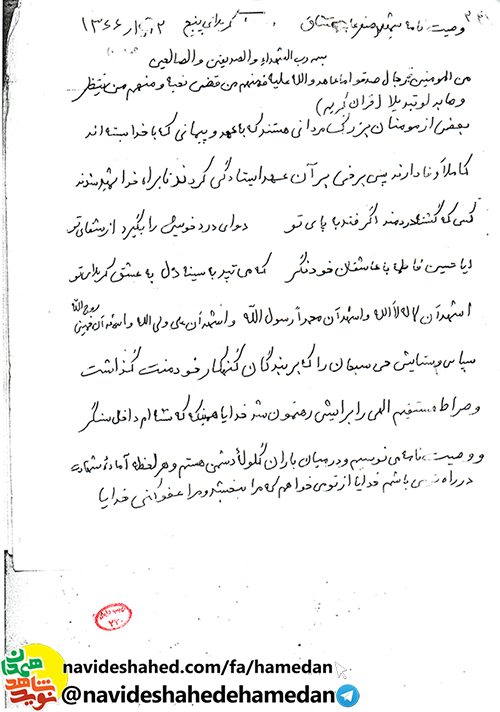 وصیت نامه شهید صفرعلی مشتاق کربلای پنج ۱۳۶۶
بسم رب الشهداء والصدیقین والصالحین
من المومنین رجال صدقوا ما عاهدوالله علیه فمنهم من قضی نحبه و منهم من ینتظر
و ما بدلو تبدیلا (قران کریم)
بعضی از مومنان بزرگ مردانی هستند که با عهد و پیمانی که با خدا بسته اند
کاملاً وفا دارند پس برخی بر آن عهد ایستادگی کردند تا براه خدا شهید شدند
کسی که گشته دردمند اگر فتد به پای تو دوای درد خویش را بگیرد از شفای تو
ایا حسین فاطمه با عاشقان خود نگر که می تپد به سینه دل به عشق کربلای تو
اشهد آن لا اله الا الله و اشهد آن محمداً رسول الله و اشهد آن علی ولی الله و اشهد آن خمینی روح الله
سپاس و ستایش حی سبحان را که بر بندگان گنهکار خود منت گذاشت
و صراط مستقیم الهی را برایش رهنمون شد خدایا همینکه که نشته ام داخل سنگر
و وصیت نامه می نویسم و در میان باران گلوله دشمن هستم و هر لحظه آماده شهادت
در راه تو می باشم خدایا از تو می خواهم که مرا ببخشید و مرا عفو کنی خدایا
۲۲۰
navideshahed.com/fa/hamedan
@navideshahedehamedan
نوید شاهد
همدان